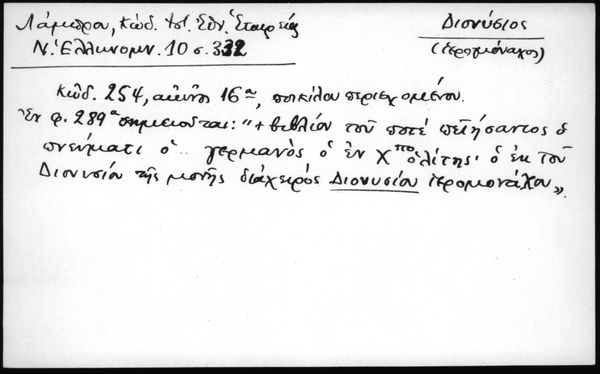 Λάμπρου, Κώδ. Ἱστ. Ἐθν. Ἑταιρείας
Διονύσιος
Ν. Ἑλληνομν. 10 σ. 332
(ἱερομόναχος)
Κῶδ. 254, αἰῶνος 16ᵒᵘ, ποικίλου περιεχομένου.
Ἐν φ. 289ᵃ σημειοῦται: "+ βιβλίον τοῦ ποτέ
πνεύματι ὁ... γερμανὸς ὁ ἐν Χπολίτης· ὁ ἐκ τοῦ
Διονυσίου τῆς μονῆς διάχειρός Διονυσίου ἱερομονάχου».